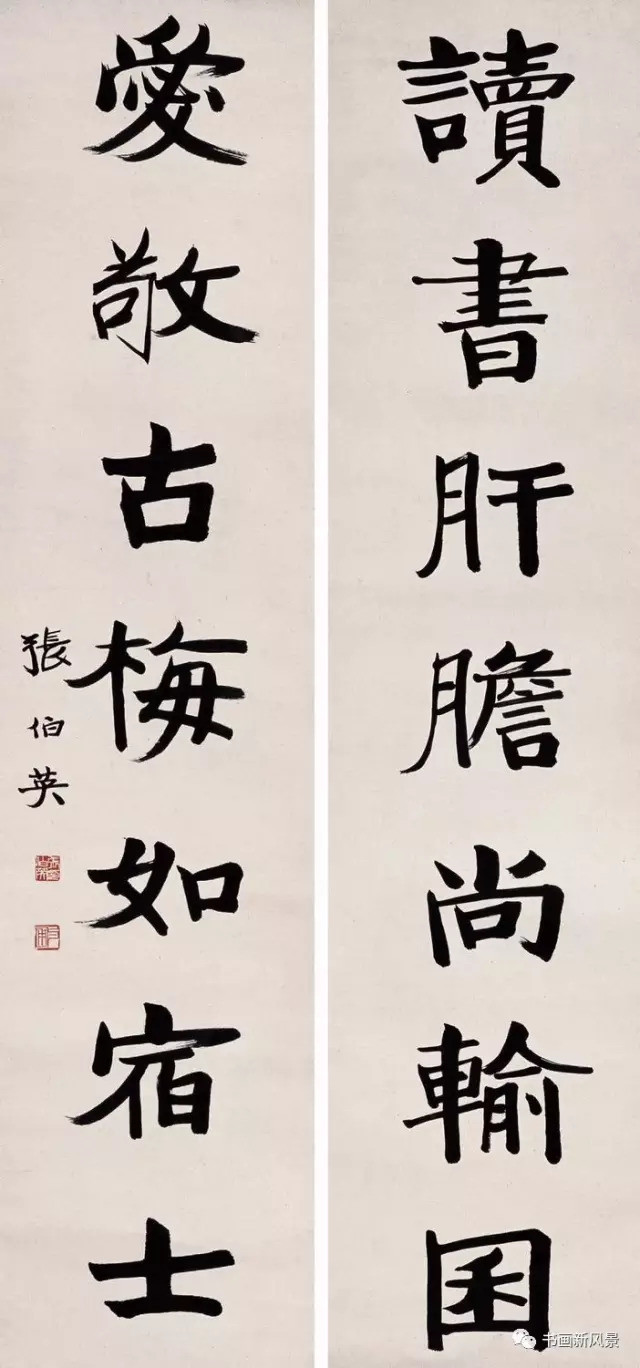 讀書肝膽尚輪囷
愛敬古梅如宿士
張伯英
书画新风景